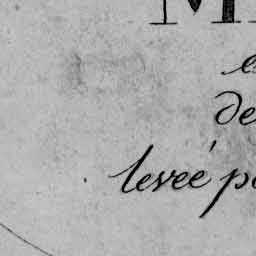 M
e
de
levée p